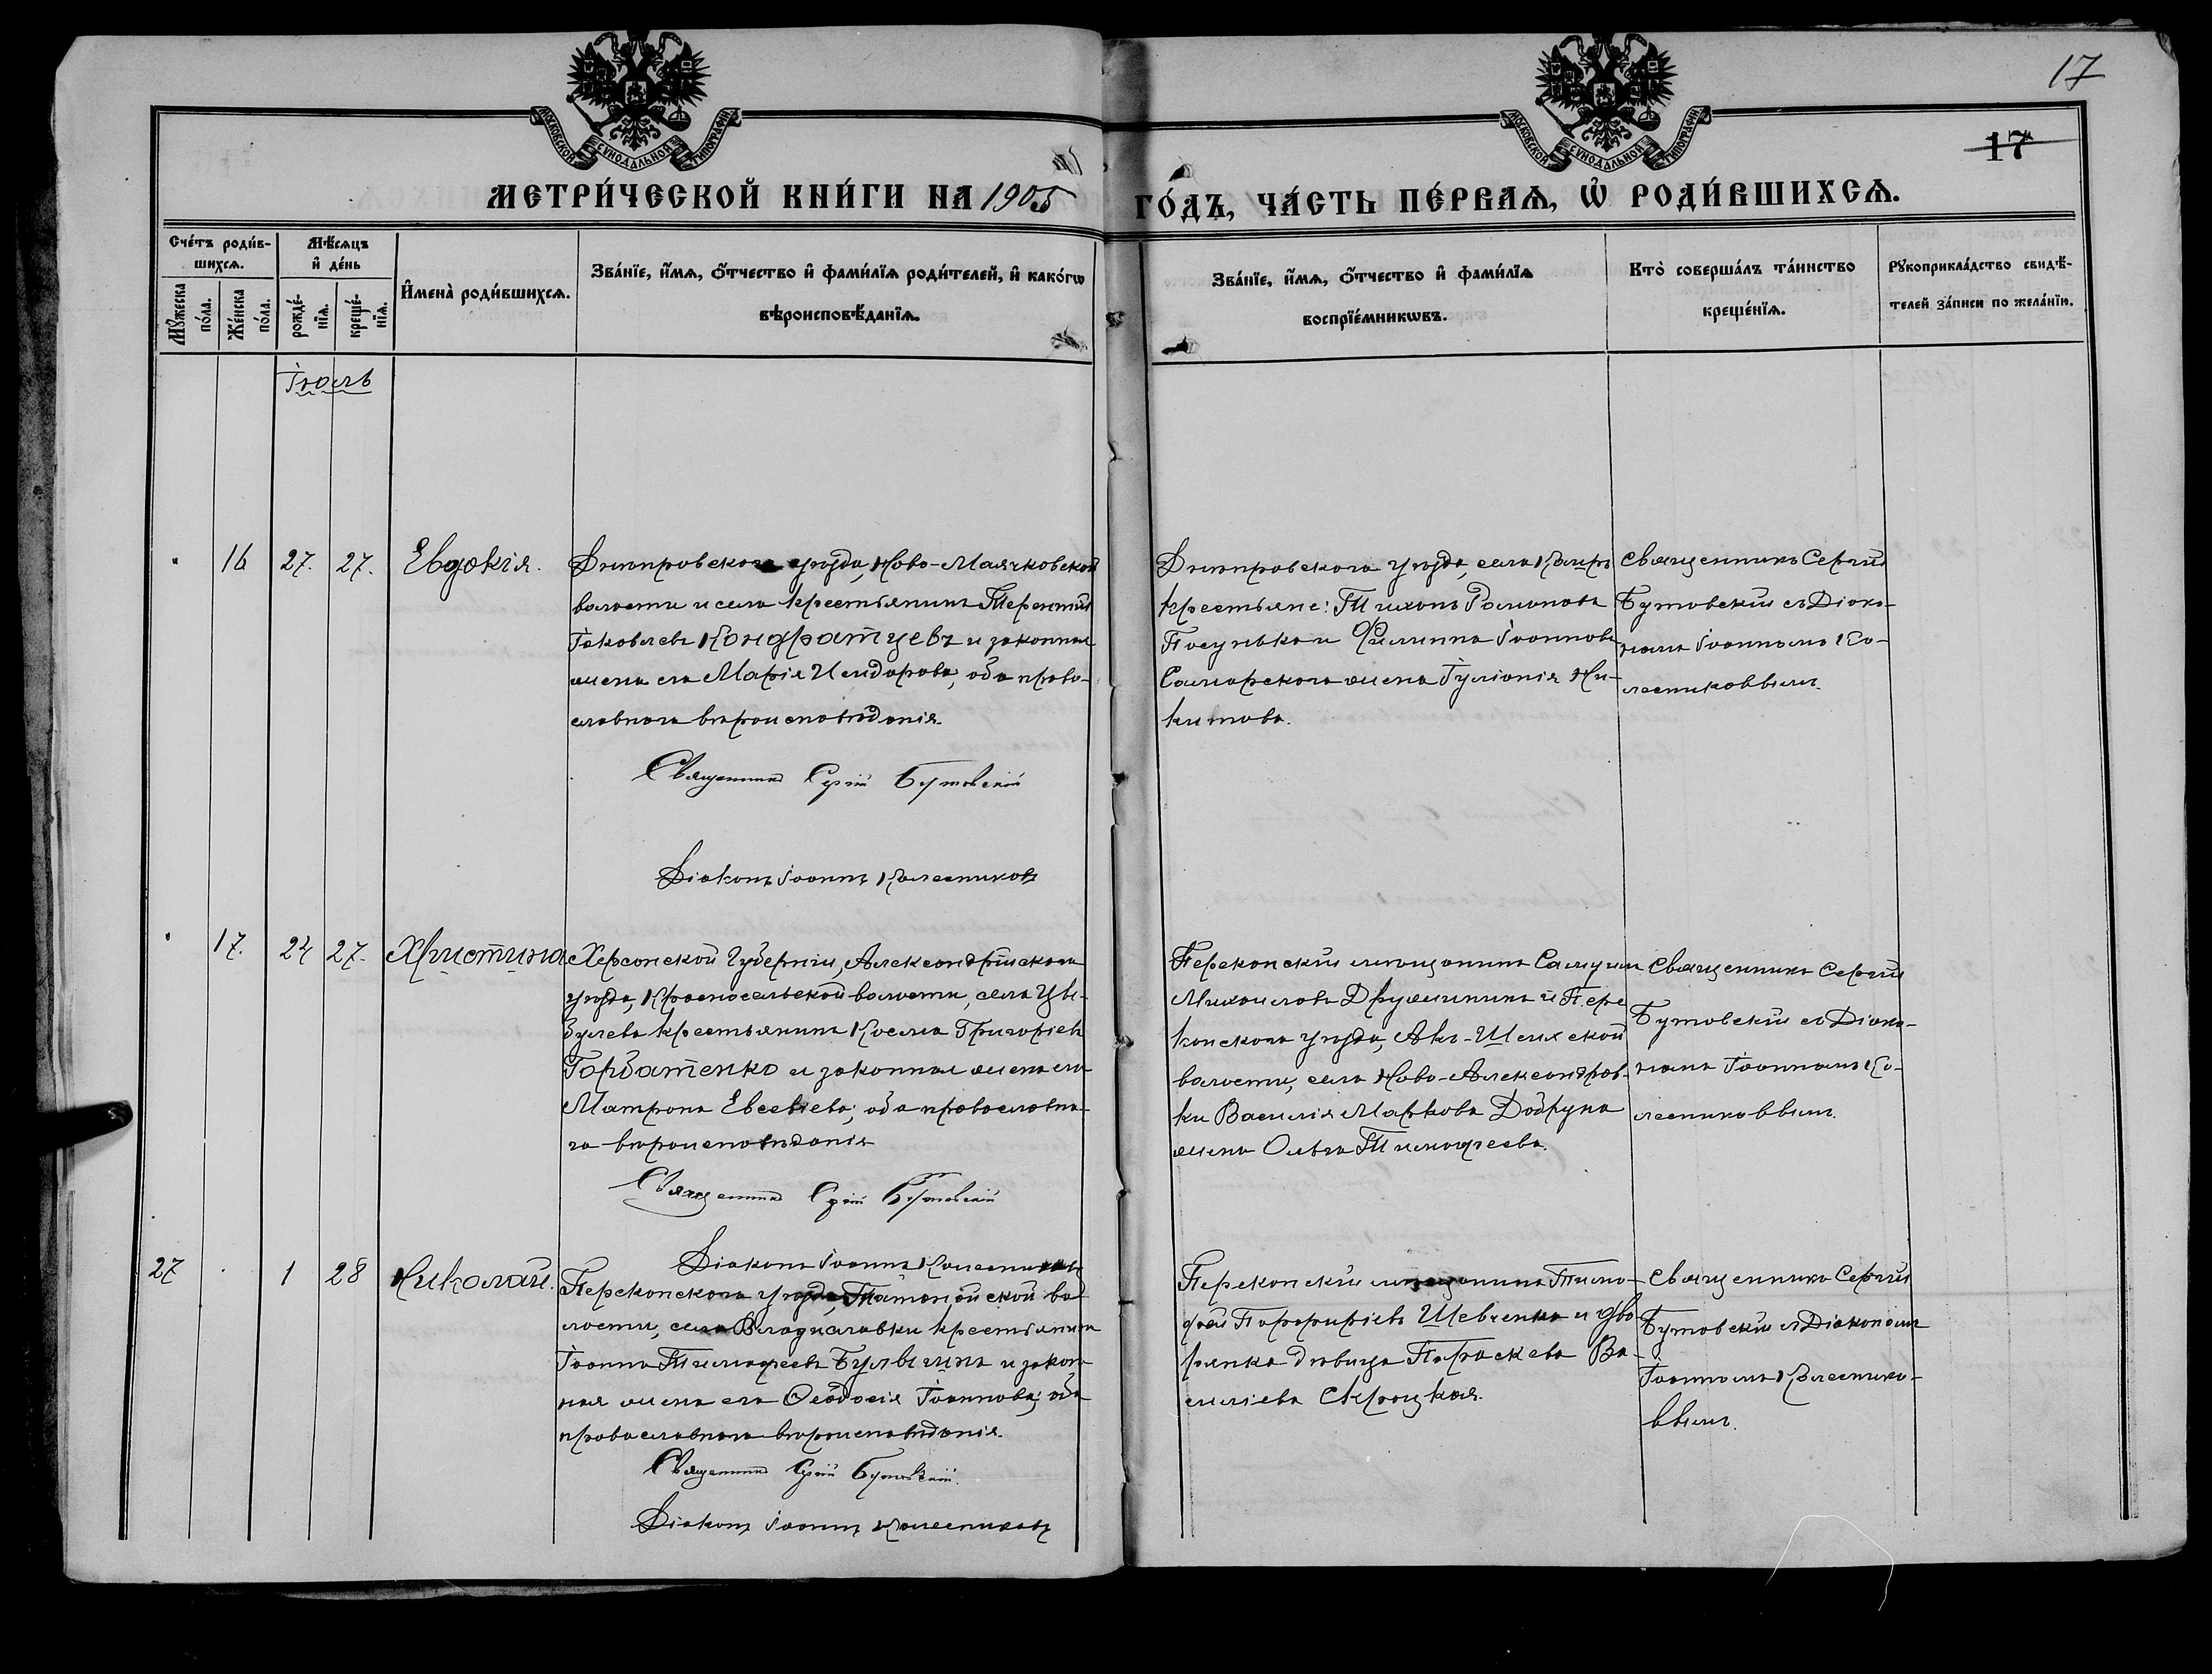 17
17
МОСКОВСКОЙ СѴНОДАЛЬНОЙ ТИПОГРАФІИ
МОСКОВСКОЙ СѴНОДАЛЬНОЙ ТИПОГРАФІИ
МЕТРИ́ЧЕСКОЙ КНИ́ГИ НА 1905 ГО́ДЪ, ЧА́СТЬ ПЕ́РВАѦ, Ѡ҆ РОДИ́ВШИХСѦ.
Сче́тъ роди́в-
шихсѧ.
Мꙋ́жеска по́ла.
Же́нска по́ла.
Мѣ́сѧцъ
и҆ де́нь
рожде́-
нїѧ.
креще́-
нїѧ.
И҆мена̀ роди́вшихсѧ.
Зва́нїе, и҆́мѧ, ѻ҆́тчество и҆ фами́лїѧ роди́телей, и҆ како́гѡ
вѣроисповѣ́данїѧ.
Зва́нїе, и҆́мѧ, ѻ҆́тчество и҆ фами́лїѧ
воспрїе́мникѡвъ.
Кто̀ соверша́лъ та́инство
креще́нїѧ.
Рꙋкоприкла́дство свидѣ́-
телей за́писи по жела́нїи.
Іюль
16 27. 27. Евдокія.
Днѣпровскаго уѣзда, Ново-Маячковской
волости и села крестьянинъ Терентій
Іаковлевъ Кондратцевъ и законная
жена его Марія Исидорова, оба право-
славнаго вѣроисповѣданія
Священникъ Сергій Бутовскій
Діаконъ Іоаннъ Колесниковъ
Днѣпровскаго уѣзда, села Каиръ
крестьяне: Тихонъ Романовъ
Посунько и Филиппа Іоаннова
Самарскаго жена Іуліанія Ни-
китова.
Священникъ Сергій
Бутовскій съ Діако-
номъ Іоанномъ Ко-
лесниковымъ.
17. 24 27. Христина
Херсонской Губерніи, Александрійскаго
уѣзда, Красносельской волости, села Цы-
булева крестьянинъ Косма Григоріевъ
Горбатенко и законная жена его
Матрона Евсевіева; оба православна-
го вѣроисповѣданія
Священникъ Сергій Бутовскій
Діаконъ Іоаннъ Колесниковъ
Перекопскій мѣщанинъ Самуилъ
Михаиловъ Дружининъ и Пере
копскаго уѣзда, Акъ-Шеихской
волости, села Ново-Александров-
ки Василія Маркова Добруна
жена Ольга Тимофеева.
Священникъ Сергій
Бутовскій съ Діако-
номъ Іоанномъ Ко-
лесниковымъ.
27 1 28 Николай.
Перекопскаго уѣзда, волости, села Владиславки крестьянинъ
Іоаннъ Тимофеевъ и закон
ная жена его Ѳеодосія Іоаннова; оба
православнаго вѣроисповѣданія.
Священникъ Сергій Бутовскій.
Діаконъ Іоаннъ Колесниковъ
Перекопскій мѣщанинъ Тимо-
фей Порфиріевъ Шевченко и дво
рянка дѣвица Параскева Ва-
силіева Скроцкая.
Священникъ Сергій
Бутовскій съ Діакономъ
Іоанномъ Колеснико-
вымъ.